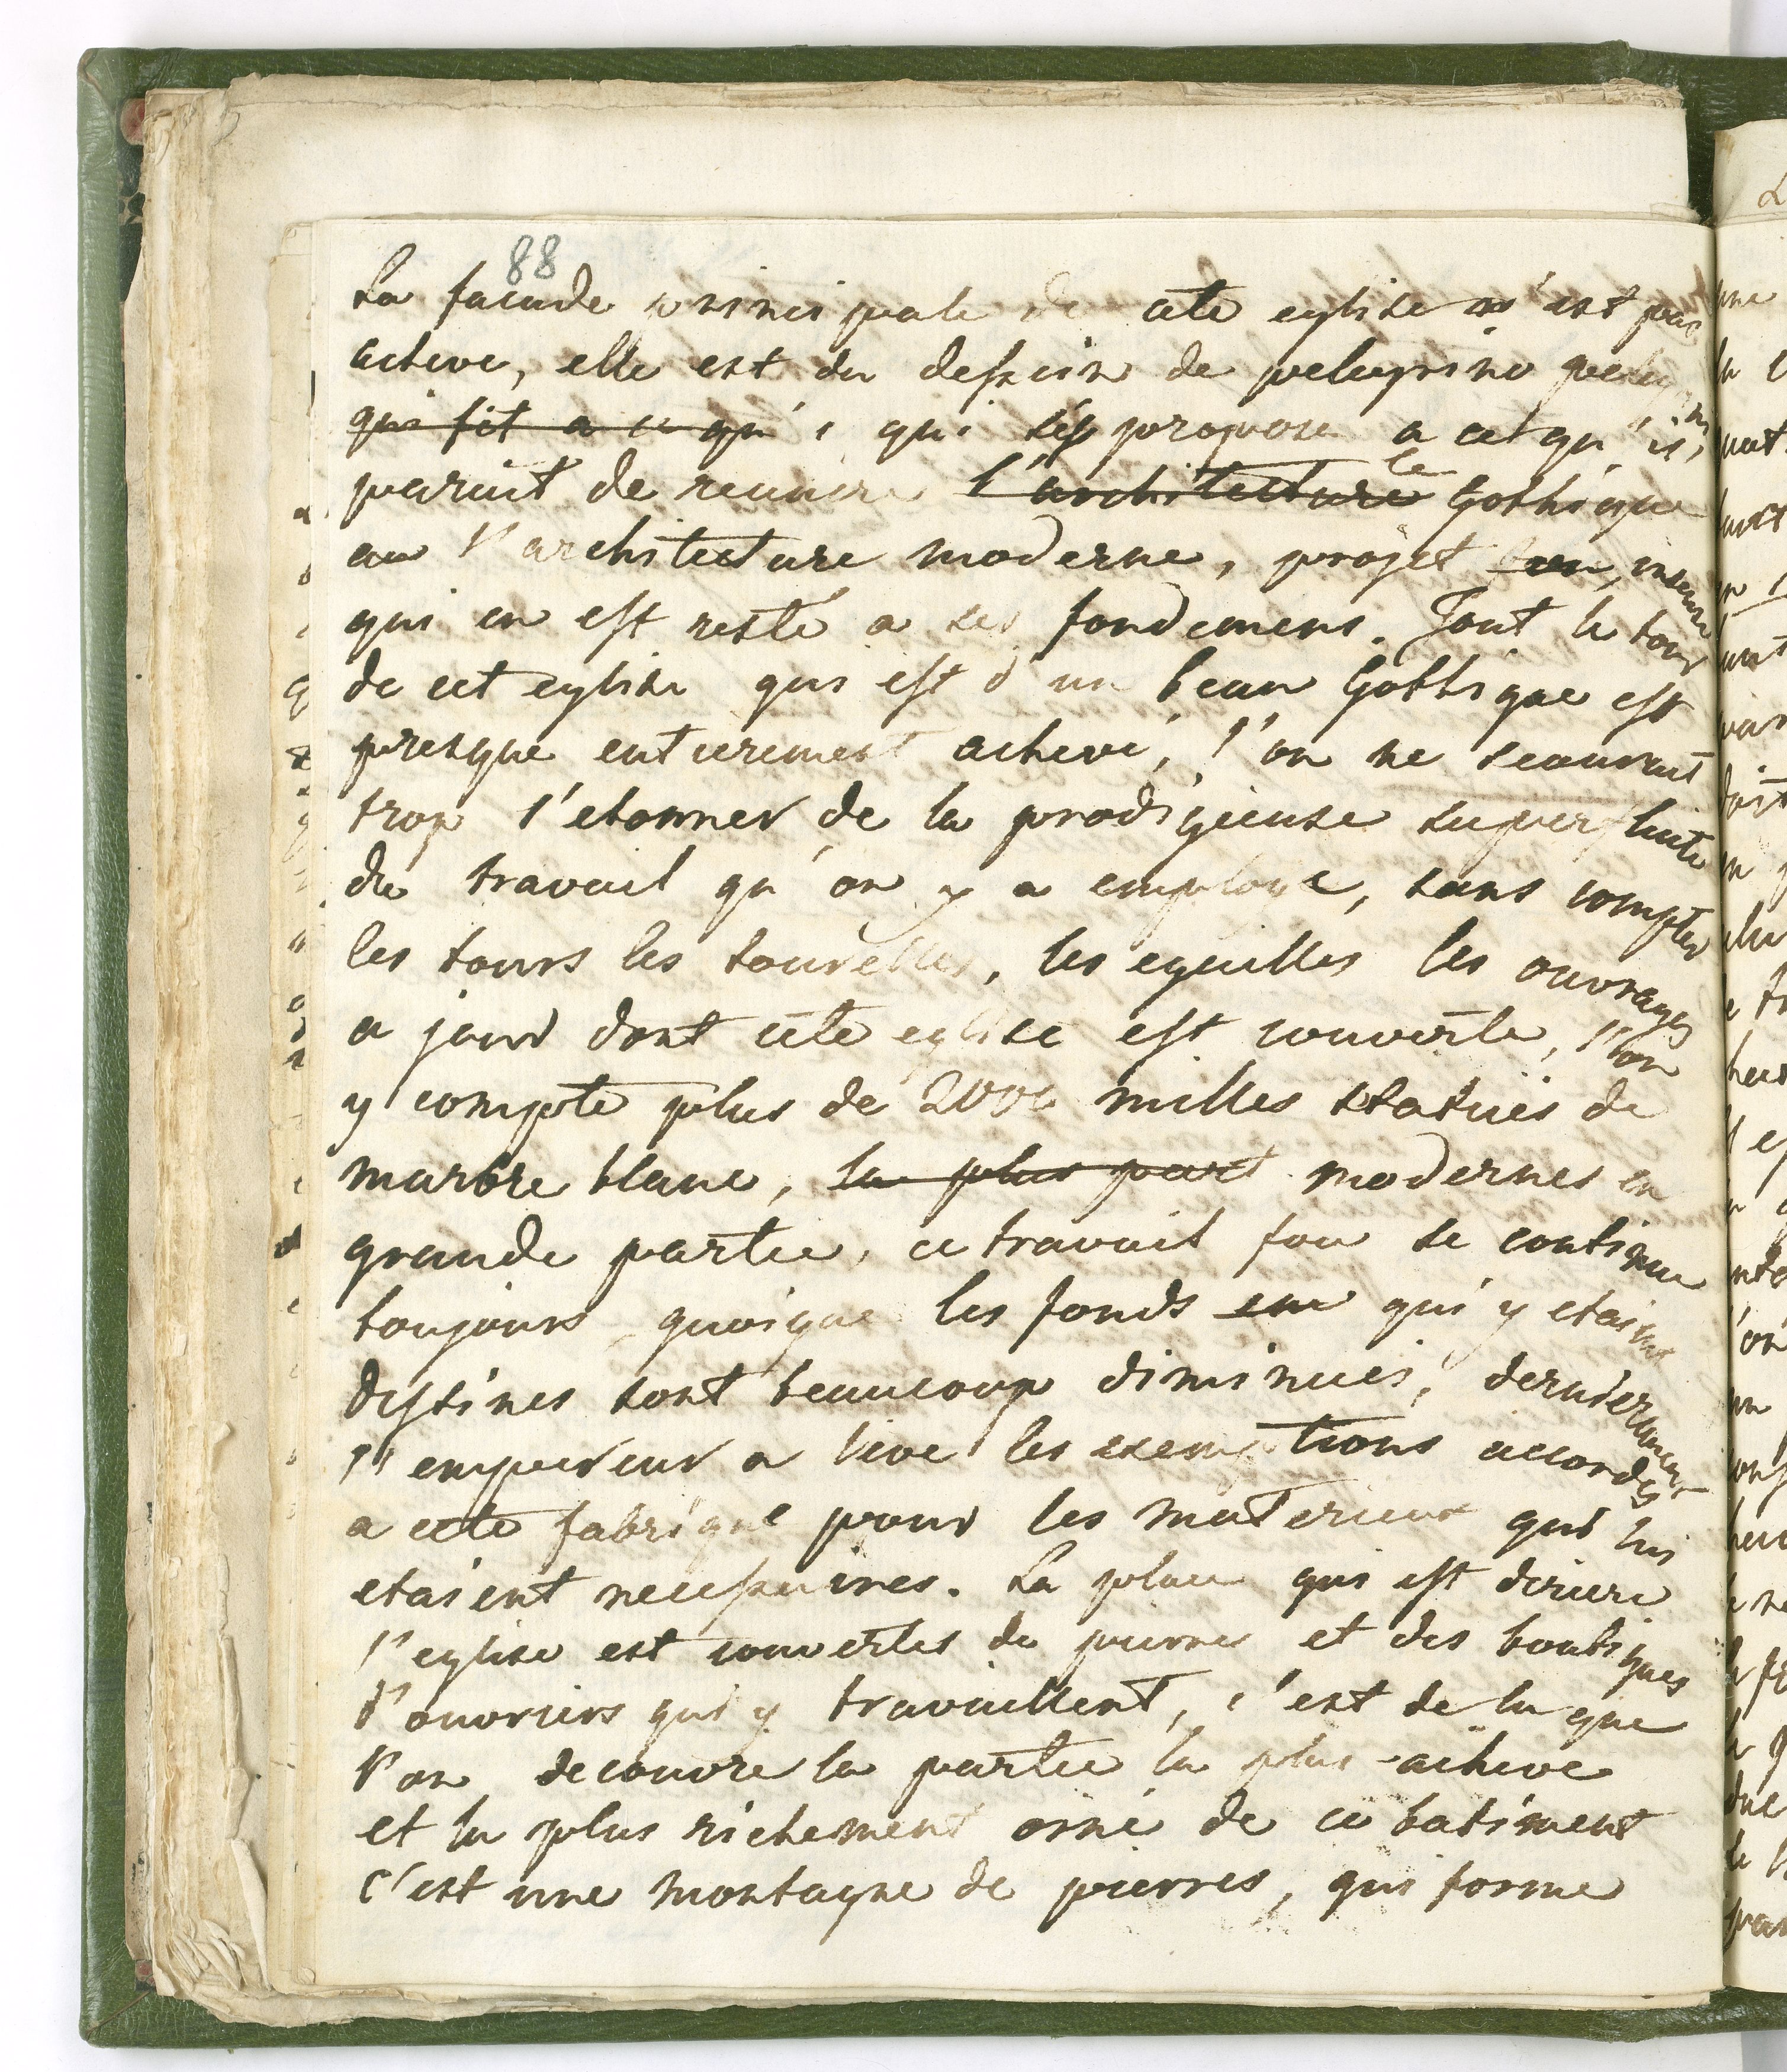 88
La facade principale de cete eglise n'est pas
acheve, elle est du dessein de pelegrino pelegrini
qui fit a ce qu'i qui se proposa a cet qu'il
parait de reunire l'architecture le Gothique
au l'architecture moderne, projet
qui en est resté a ses fondemens. Tout le tour
de cet eglise qui est d'un beau Gothique est
presque entierement achevé, l'on ne scauroit
trop s'etonner de la prodigieuse superfluite
du travail qu'on y a employé, sans compter
les tours les tourelles, les eguilles les ouvrages
a jour dont cete eglise est couverte, l'on
y compte plus de 2000 milles statues de
marbre blanc, la plus part modernes en
grande partie, ce travail fou se continue
toujours quoique les fonds qui y etaint
destines sont beaucoup diminués, dernierement
l'empereur a levé les exemptions accordes
a cete fabrique pour les materiaux qui lui
etaient necessaires. La place qui est deriere
l'eglise est couvertes de pierres et des boutiques
d'ouvriers qui y travaillent, c'est de la que
l'on decouvre la partie la plus acheve
et la plus richement orné de ce batiment
c'est une montagne de pierres, qui forme